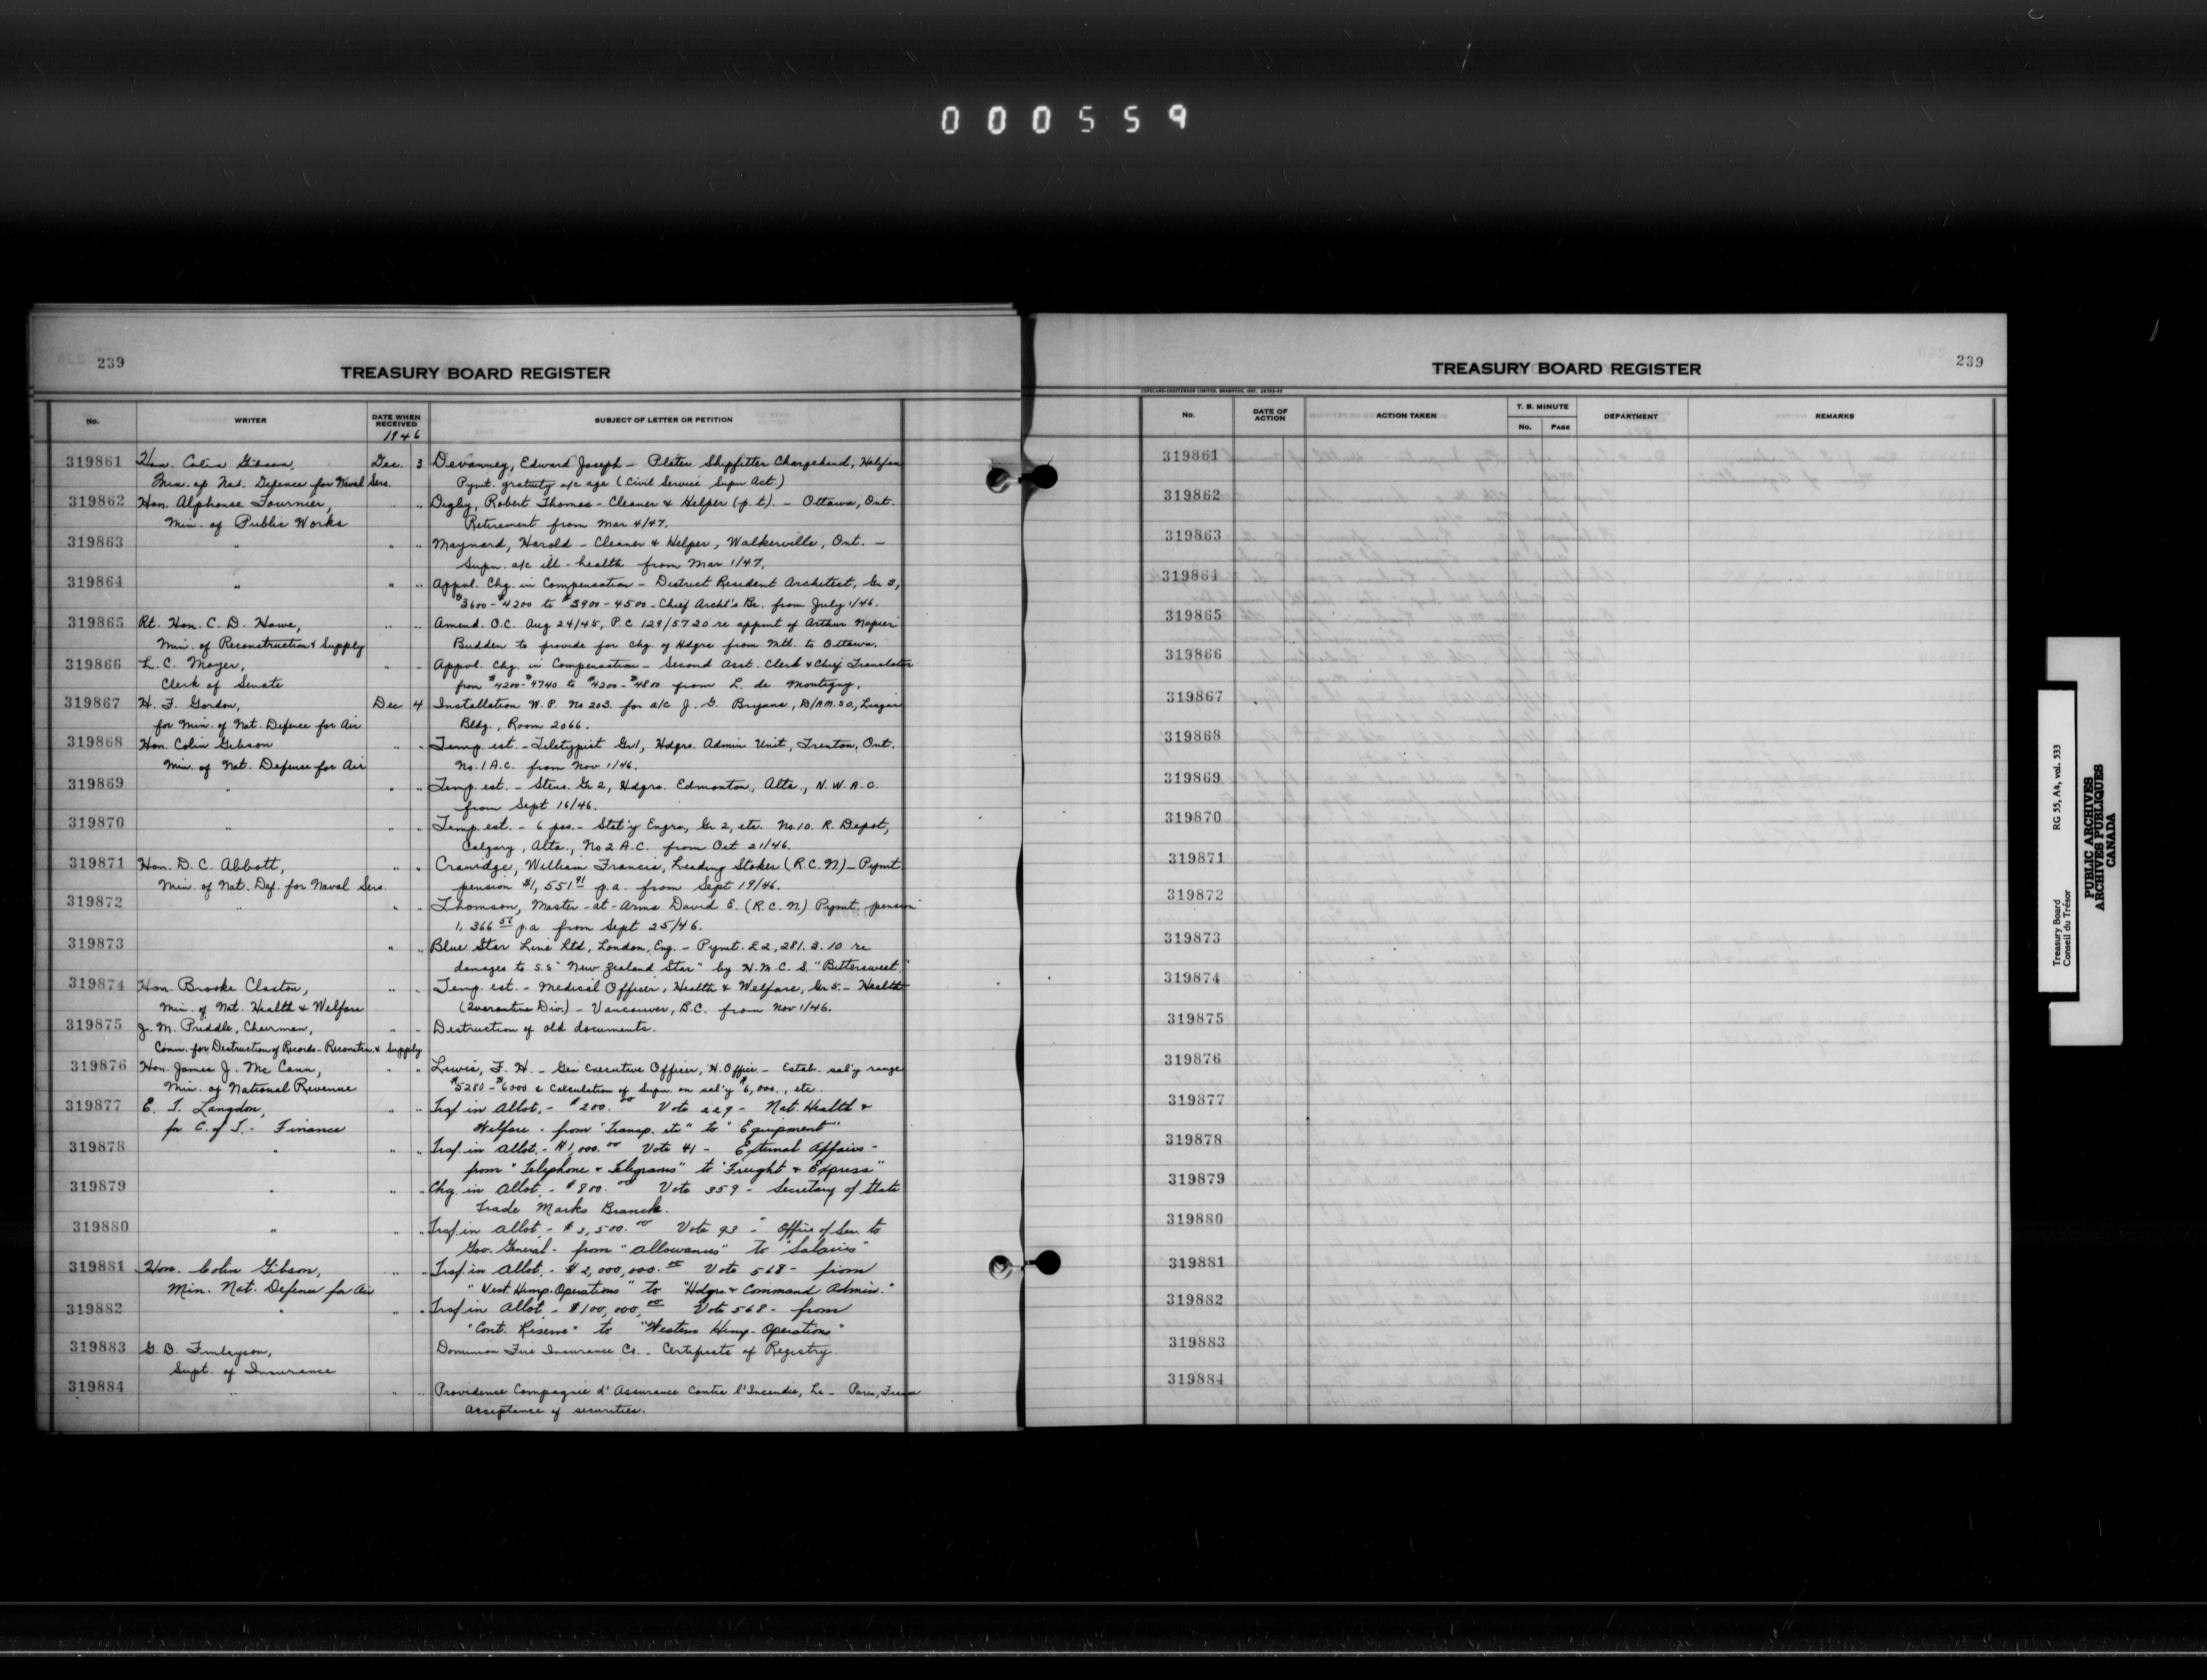 000559
239
TREASURY BOARD REGISTER
No. WRITER DATE WHEN RECEIVED SUBJECT OF LETTER OR PETITION
1946
319861 Hon. Colin Gibson, Dec. 3 Devanney, Edward Joseph - Plater Shipfitter Chargehand, Halifax
Min. of Nat. Defence for Naval Sers. Pymt. gratuity a/c age (Civil Service Supn Act.)
319862 Hon. Alphonse Fournier, " " Digby, Robert Thomas - Cleaner & Helper (p.t). - Ottawa, Ont.
Min. of Public Works Retirement from Mar 4/47.
319863 " " " Maynard, Harold - Cleaner & Helper, Walkerville, Ont. -
Supn. a/c ill-health from Mar 1/47.
319864 " " " Appvl. Chg. in Compensation - District Resident Architect, Gr 3,
$3600-$4200 to $3900-4500 - Chief Archt's Br. from July 1/46.
319865 Rt. Hon. C. D. Howe, " " Amend. O.C. Aug 24/45, P.C 129/5720 re appmt of Arthur Napier
Min. of Reconstruction & Supply Budden to provide for chg. of Hdqrs from Mtl. to Ottawa.
319866 L. C. Moyer, " " Appvl. Chg. in Compensation - Second Asst. Clerk & Chief Translator
Clerk of Senate from $4200-$4740 to $4200-$4800 from L. de Montigny.
319867 H. F. Gordon, Dec 4 Installation W.P. No 203. for a/c J. G. Bryans, D/AM.SO, Lisgar
for Min. of Nat. Defence for Air Bldg., Room 2066.
319868 Hon. Colin Gibson " " Temp. est. - Teletypist Gr 1, Hdqrs. Admin Unit, Trenton, Ont.
Min. of Nat. Defence for Air No. 1 A.C. from Nov 1/46.
319869 " " " Temp. est. - Steno. Gr 2, Hdqrs. Edmonton, Alta., N.W.A.C.
from Sept 16/46.
319870 " " " Temp. est. - 6 pos. - Stat'y Engrs, Gr 2, etc. No. 10. R. Depot,
Calgary, Alta., No 2 A.C. from Oct 21/46.
319871 Hon. D. C. Abbott, " " Cranidge, William Francis, Leading Stoker (R.C.N) - Pymt
Min. of Nat. Def. for Naval Sers. pension $1,551 91 p.a. from Sept 19/46.
319872 " " " Thomson, Master-at-Arms David E. (R.C.N) Pymt. pension
1,366 57 p.a. from Sept 25/46.
319873 " " Blue Star Line Ltd, London, Eng. - Pymt. £2,281.3.10 re
damages to S.S "New Zealand Star" by H.M.C.S. "Bittersweet."
319874 Hon. Brooke Claxton, " " Temp. est. - Medical Officer, Health & Welfare, Gr 5 - Health
Min. of Nat. Health & Welfare (Quarantine Div.) - Vancouver, B.C. from Nov 1/46.
319875 J. M. Priddle, Chairman, " " Destruction of old documents.
Comm. for Destruction of Records - Reconstrn. & Supply
319876 Hon. James J. McCann, " " Lewis, F. H. - Gen Executive Officer, H. Office - Estab. sal'y range
Min. of National Revenue $5280-$6000 & Calculation of Supn. on sal'y $6,000., etc.
319877 E. T. Langdon, " " Trsf. in Allot. - $200. 00 Vote 229 - Nat. Health &
for C. of T. - Finance Welfare - from "Transp. etc" to "Equipment"
319878 " " " Trsf. in Allot. - $1,000. 00 Vote 41 - External Affairs -
from "Telephone & Telegrams" to "Freight & Express"
319879 " " " Chg. in Allot. - $800. 00 Vote 359 - Secretary of State
Trade Marks Branch.
319880 " " " Trsf in Allot - $3,500. 00 Vote 93 - Office of Sec. to
Gov. General - from "Allowances" to "Salaries"
319881 Hon. Colin Gibson, " " Trsf in Allot. - $2,000,000. 00 Vote 568 - from
Min. Nat. Defence for Air "West. Hemp. Operations" to "Hdqrs & Command Admin."
319882 " " " Trsf in Allot - $100,000. 00 Vote 568 - from
"Cont. Reserve" to "Western Hemp. Operations"
319883 G. D. Finlayson, Dominion Fire Insurance Co. - Certificate of Registry.
Supt. of Insurance
319884 " " " Providence Compagnie d'Assurance Contre l'Incendie, La - Paris, France
Acceptance of securities.
TREASURY BOARD REGISTER
239
COPELAND-CHATTERSON LIMITED, BRAMPTON, ONT.
No. DATE OF ACTION ACTION TAKEN T. B. MINUTE DEPARTMENT REMARKS
No. PAGE
319861
319862
319863
319864
319865
319866
319867
319868
319869
319870
319871
319872
319873
319874
319875
319876
319877
319878
319879
319880
319881
319882
319883
319884
Treasury Board RG 55, A4, vol. 533
Conseil du Trésor
PUBLIC ARCHIVES
ARCHIVES PUBLIQUES
CANADA